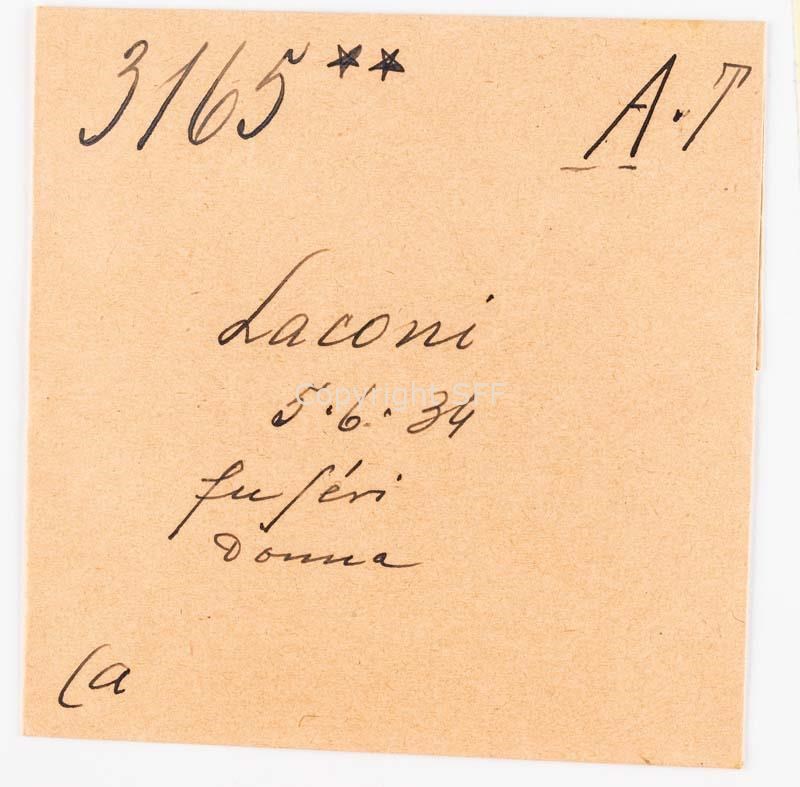 3165** A.T
Laconi
Copyright SFF
5.6.34
fu séri
Donna
Ca